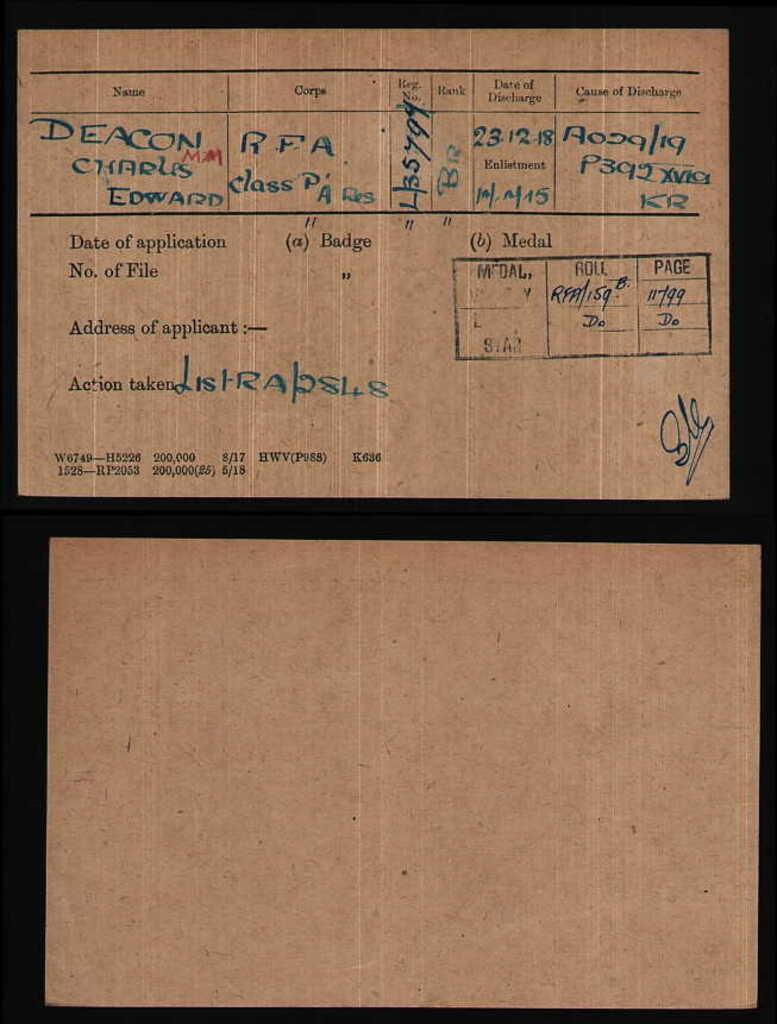 Name Corps Reg. No. Rank Date of Discharge Cause of Discharge
DEACON MM R F A L/35794 BR 23.12.18 AO29/19
CHARLES Class P/A Res Enlistment P392 XVIA
EDWARD 15 KR
" " "
Date of application (a) Badge (b) Medal
No. of File "
MEDAL, ROLL PAGE
Y RFA/159 B. 11799
Do Do
STAR
Address of applicant :—
Action taken List RA/2848
W6749—H5226 200,000 8/17 HWV(P988) K636
1528—RP2053 200,000(25) 5/18